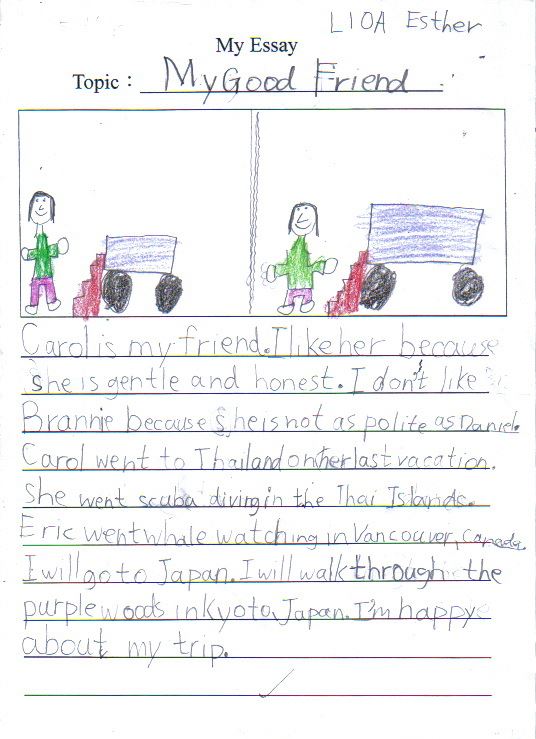 L10A Esther
My Essay
Topic : My Good Friend
Carol is my friend. I like her because
she is gentle and honest. I don't like
Brannie because she is not as polite as Daniel.
Carol went to Thailand on her last vacation.
She went scuba diving in the Thai Islands.
Eric went whale watching in Vancouver, Canada.
I will go to Japan. I will walk through the
purple woods in Kyoto, Japan. I'm happy
about my trip.